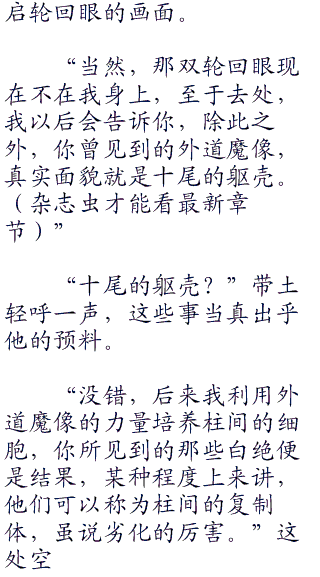 启轮回眼的画面。
“当然，那双轮回眼现
在不在我身上，至于去处，
我以后会告诉你，除此之
外，你曾见到的外道魔像，
真实面貌就是十尾的躯壳。
（杂志虫才能看最新章
节）”
“十尾的躯壳？”带土
轻呼一声，这些事当真出乎
他的预料。
“没错，后来我利用外
道魔像的力量培养柱间的细
胞，你所见到的那些白绝便
是结果，某种程度上来讲，
他们可以称为柱间的复制
体，虽说劣化的厉害。”这
处空